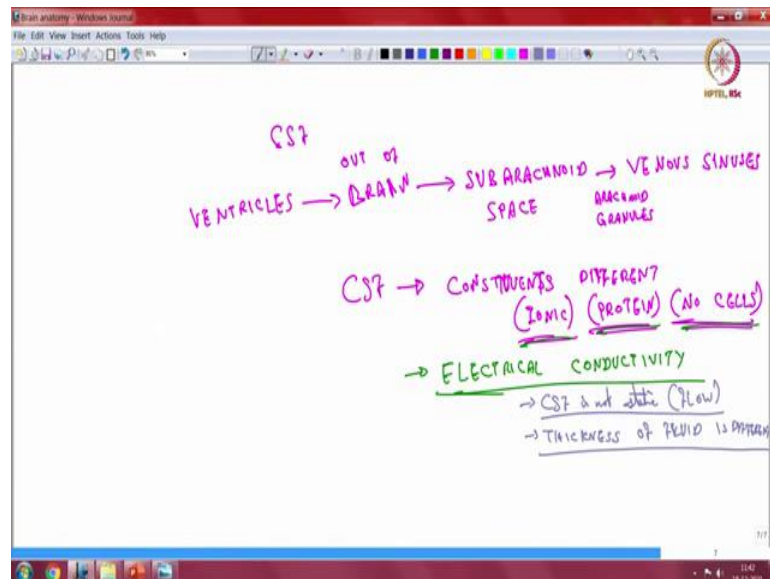 Brain anatomy - Windows Journal
File Edit View Insert Actions Tools Help
80%
NPTEL, IISc
CSF
OUT OF
VENTRICLES → BRAIN → SUBARACHNOID → VENOUS SINUSES
SPACE ARACHNOID
GRANULES
CSF → CONSTITUENTS DIFFERENT
(IONIC) (PROTEIN) (NO CELLS)
→ ELECTRICAL CONDUCTIVITY
→ CSF is not static (FLOW)
→ THICKNESS OF FLUID IS DIFFEREN
7/7
7
11:42